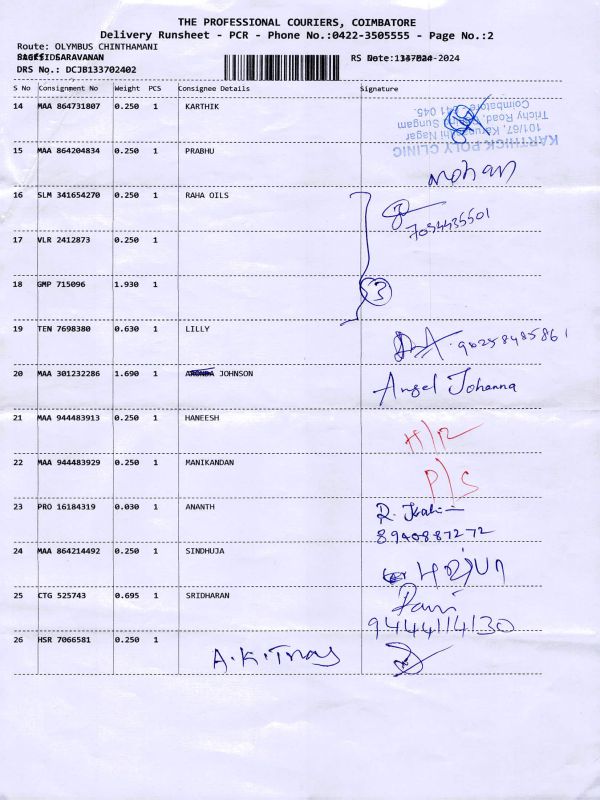 THE PROFESSIONAL COURIERS, COIMBATORE
Delivery Runsheet - PCR - Phone No.:0422-3505555 - Page No.:2
Route: OLYMBUS CHINTHAMANI
SARAVANAN
DRS No.: DCJB133702402
S No Consignment No Weight PCS Consignee Details Signature
14 MAA 864731807 0.250 1 KARTHIK
KARTHICK POLY CLINIC
Trichy Road, Sungam
Coimbatore 641 045.
15 MAA 864204834 0.250 1 PRABHU
Mohan
16 SLM 341654270 0.250 1 RAHA OILS
17 VLR 2412873 0.250 1
18 GMP 715096 1.930 1
3
19 TEN 7698380 0.630 1 LILLY
20 MAA 301232286 1.690 1 JOHNSON Angel Johanna
21 MAA 944483913 0.250 1 HANEESH H/R
22 MAA 944483929 0.250 1 MANIKANDAN P/S
23 PRO 16184319 0.030 1 ANANTH R.
8940887272
24 MAA 864214492 0.250 1 SINDHUJA
25 CTG 525743 0.695 1 SRIDHARAN Ravi
9444114130
26 HSR 7066581 0.250 1